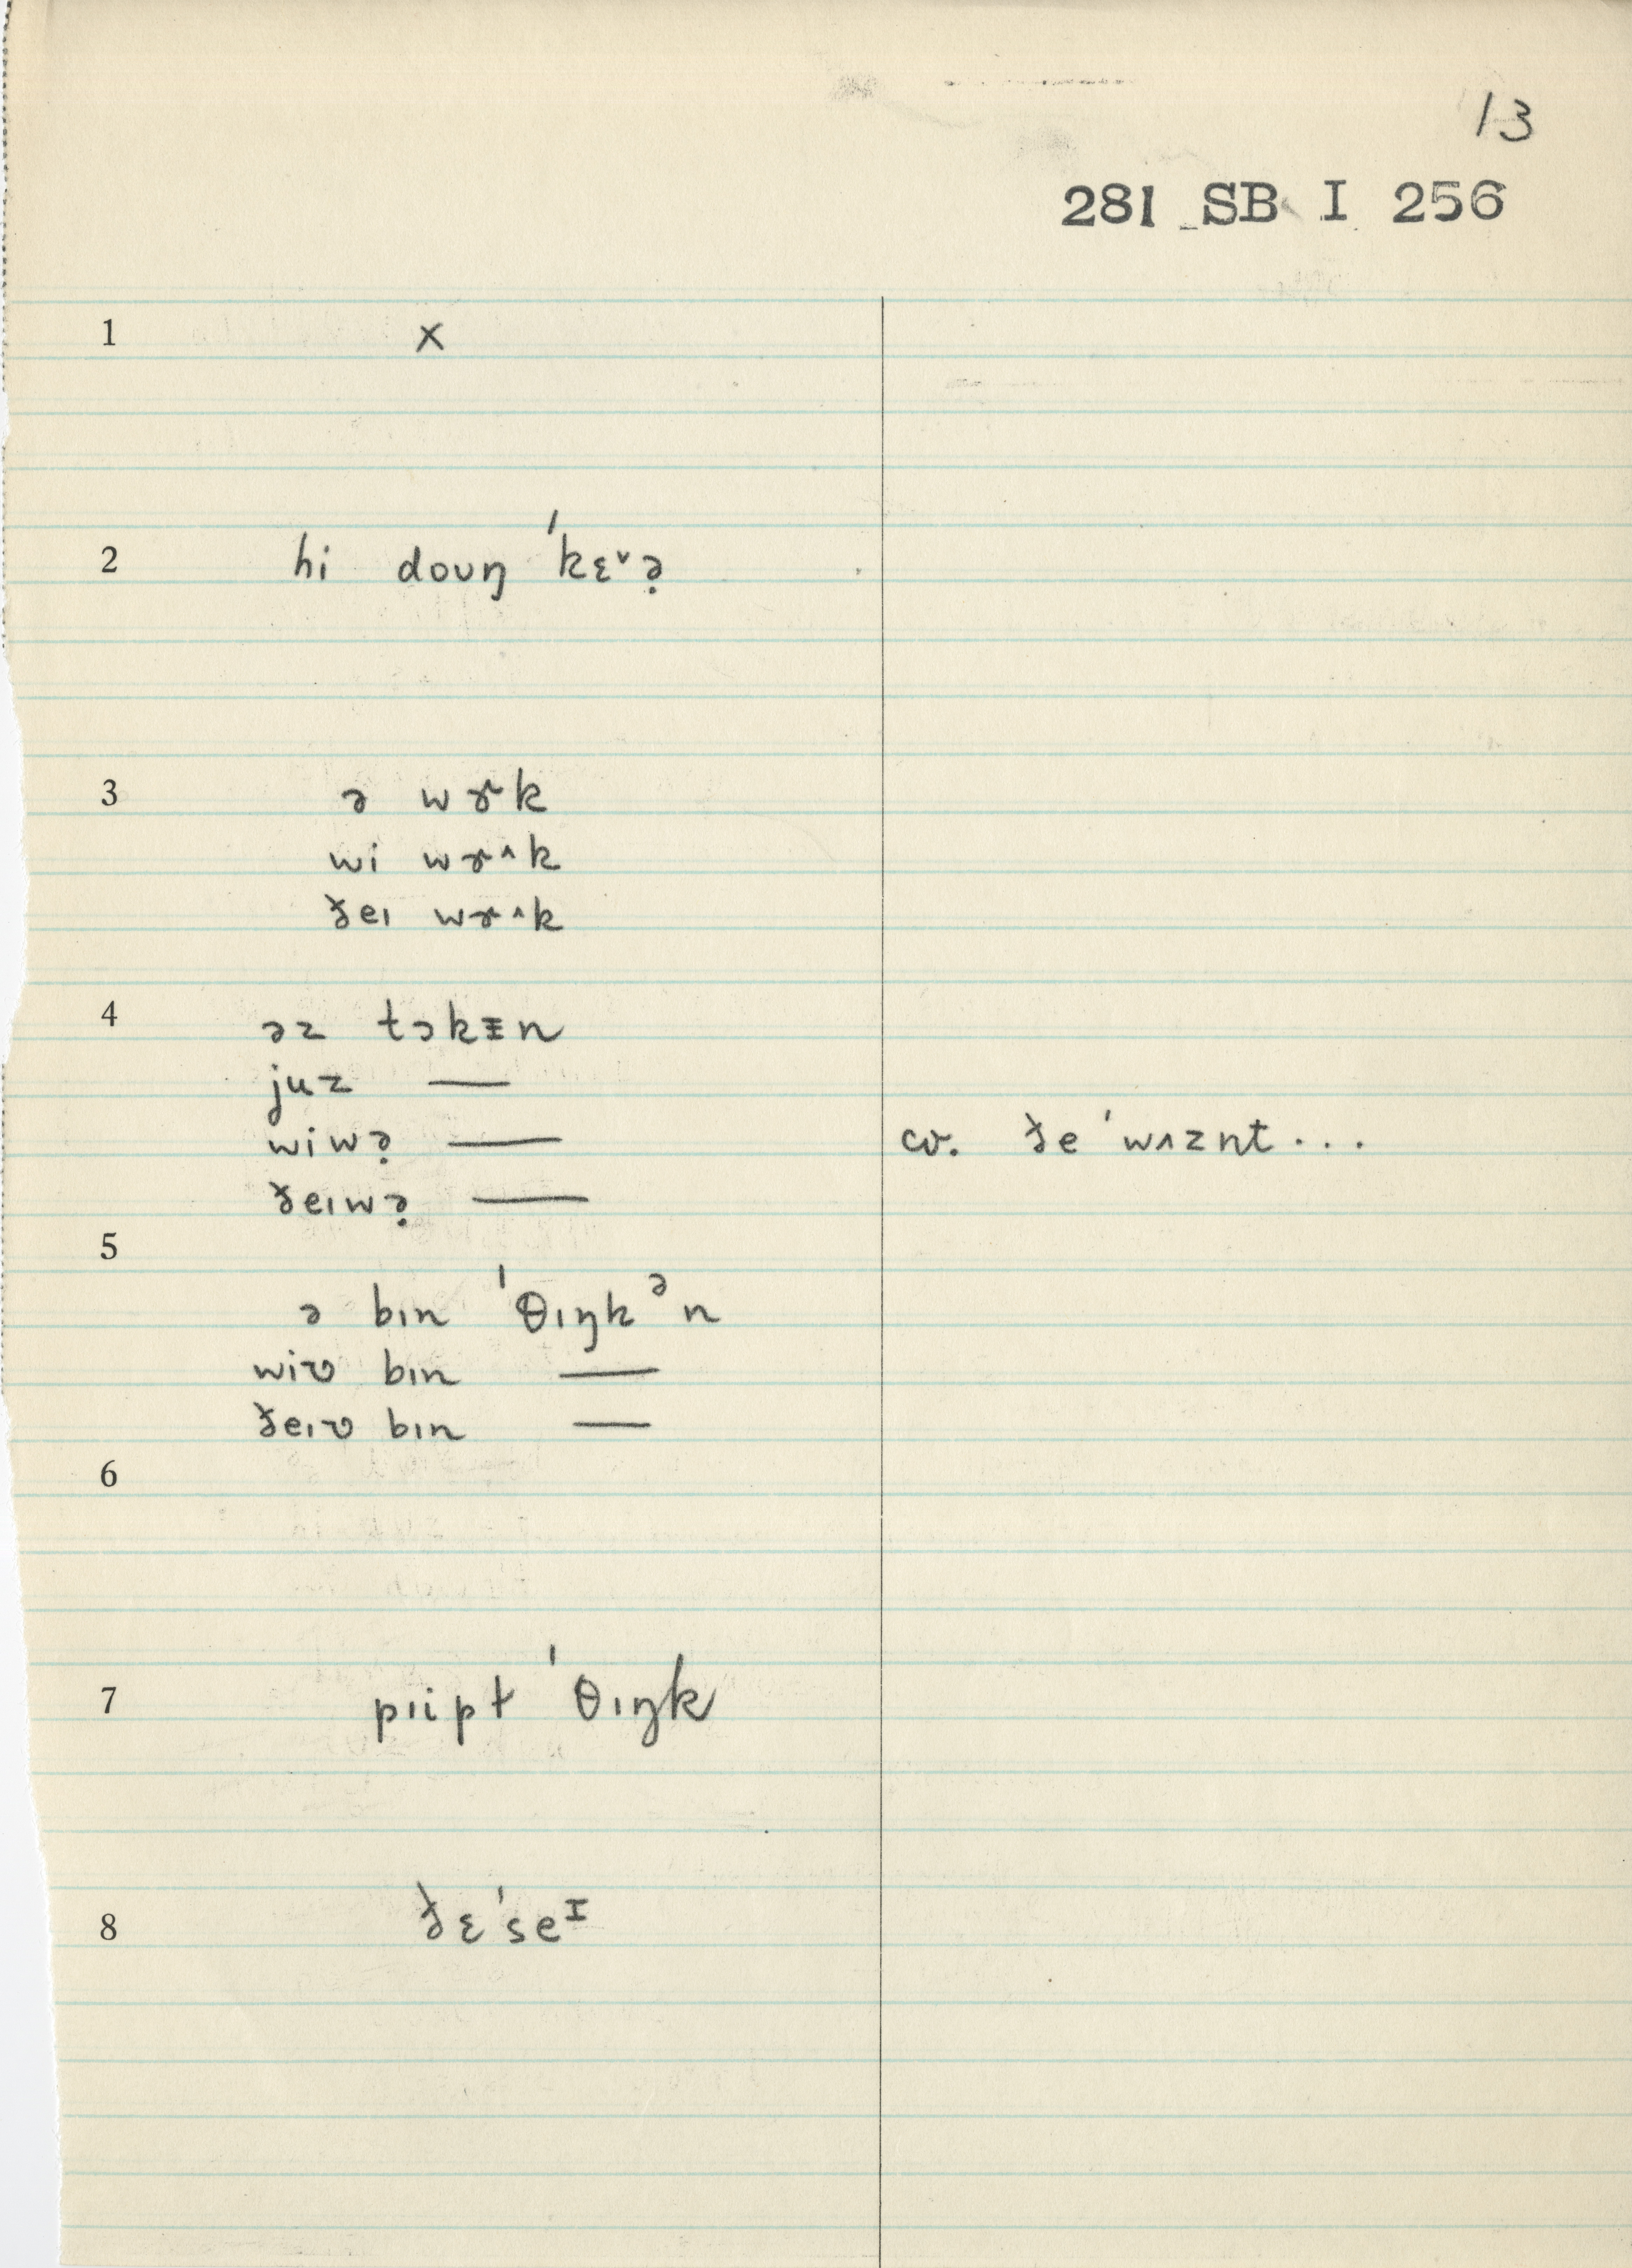 13
281 SB I 256
1 x
2 hi doʊŋ ˈkɛ˅ə̣
3 ə wɚk
wi wɚ^k
ðeɪ wɚ^k
4 əz tɔkᵻn
juz —
wiwə̣ — cv. ðe ˈwʌznt...
ðeɪwə̣ —
5
ə bɪn ˈθɪŋkᵊn
wiv bɪn —
ðeɪv bɪn —
6
7 pɪipɫ ˈθɪŋk
8 ðɛˈseᴵ